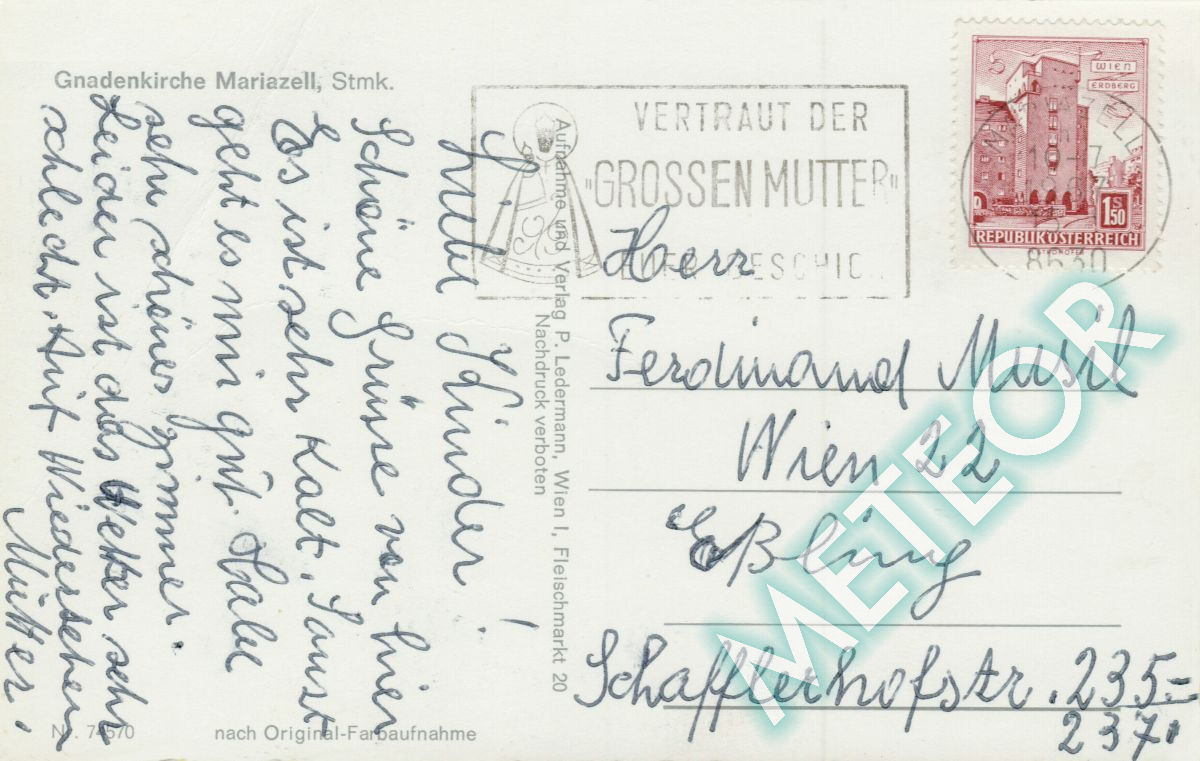 Gnadenkirche Mariazell, Stmk.
Liebe Kinder!
Schöne Grüsse von hier
Es ist sehr Kalt. Sonst
geht es mir gut. Habe
sehr schönes zimmer.
Leider ist das Wetter sehr
schlecht. Auf Wiedersehen
Mutter.
Nr. 74570
nach Original-Farbaufnahme
Aufnahme und Verlag P. Ledermann, Wien I, Fleischmarkt 20
Nachdruck verboten
VERTRAUT DER
"GROSSEN MUTTER"
WIEN
ERDBERG
1S50
REPUBLIK ÖSTERREICH
8630
Herr
Ferdinand Musil
Wien 22
Eßling
Schafflerhofstr. 235-
237.
METEOR